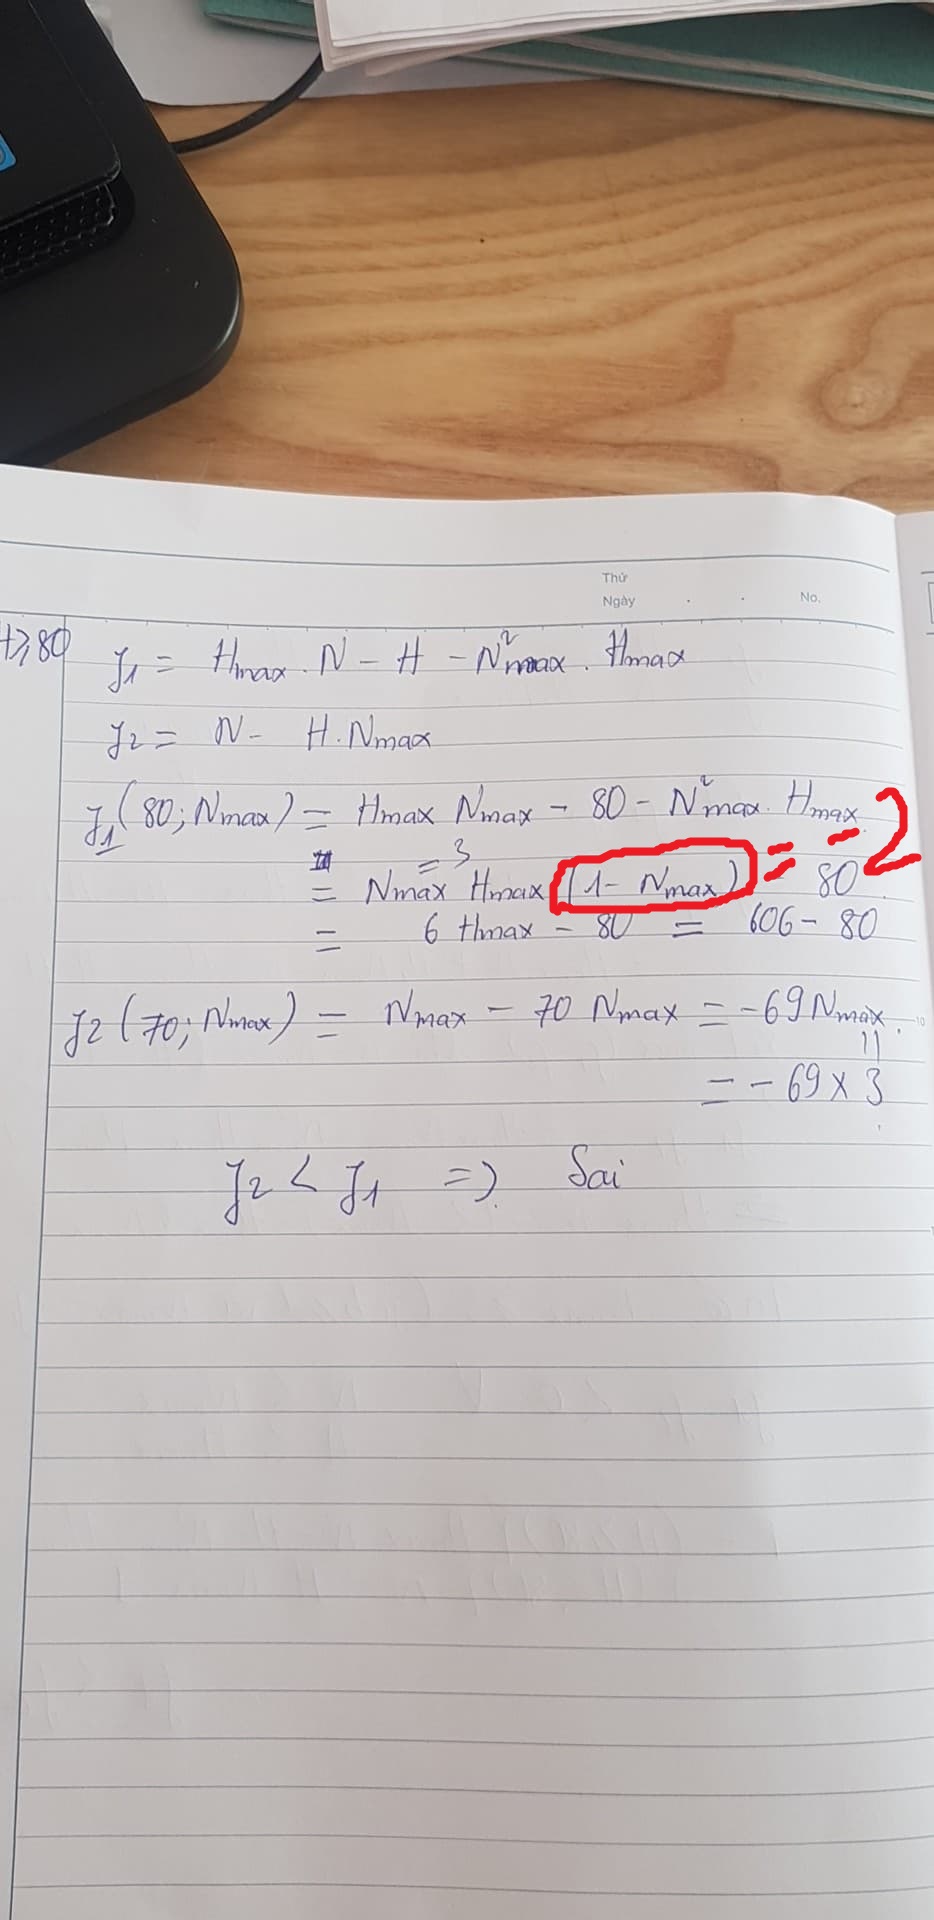 Thứ
Ngày . . No.
H≥80
J1 = Hmax . N - H - N²max . Hmax
J2 = N - H . Nmax
J1 (80; Nmax) = Hmax Nmax - 80 - N²max . Hmax
= 3
= Nmax Hmax (1 - Nmax) - 80
= -2
= 6 Hmax - 80 = 606 - 80
J2 (70; Nmax) = Nmax - 70 Nmax = -69 Nmax.
= -69 x 3
J2 < J1 => Sai